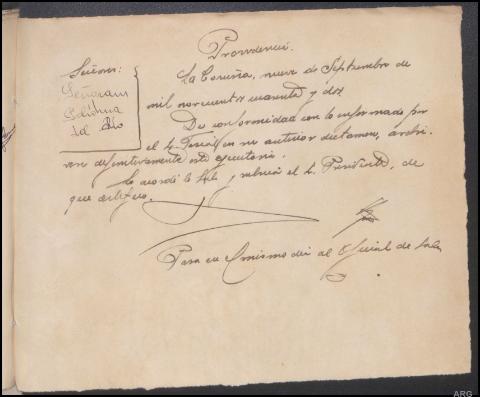 Providencia.
Señores:
Señarans
Salvina
del Río
La Coruña, nueve de Septiembre de
mil novecientos cuarenta y dos
De conformidad con lo informado por
el S. Fiscal en su anterior dictamen, archi-
vese definitivamente esta ejecutoria.
Lo acordó la Sala y rubrica el S. Presidente, de
que certifico.
Pasa en el mismo dia al Oficial de Sala
ARG